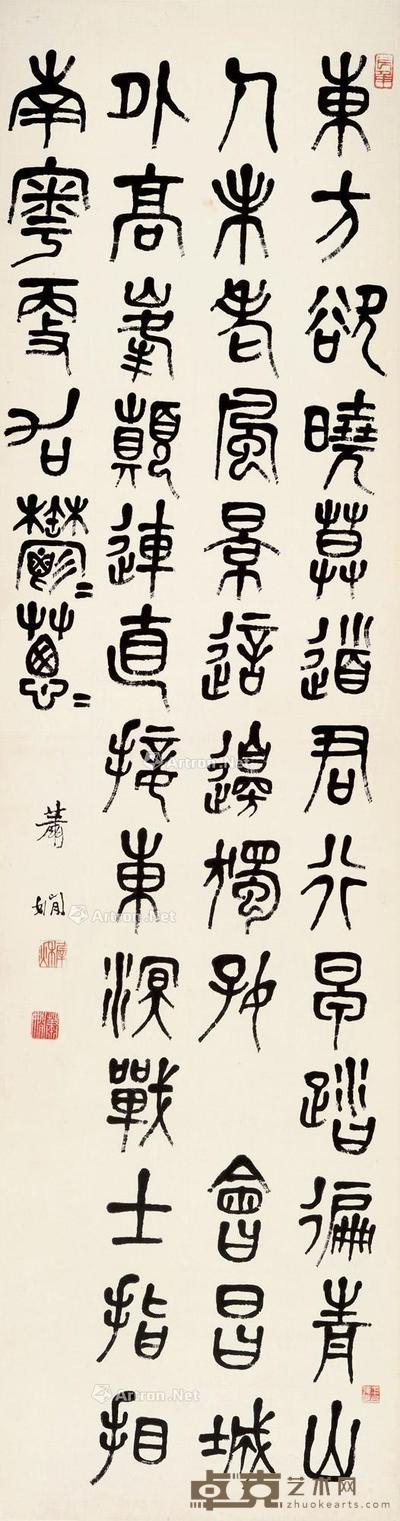 東方欲曉莫道君行早踏徧青山
人未老風景這邊獨好 會昌城
外高峯顛連直接東溟戰士指看
南粵更加鬱〻蔥〻
蕭嫻
Artron.Net
Artron.Net
Artron.Net
卓克艺术网
zhuokearts.com